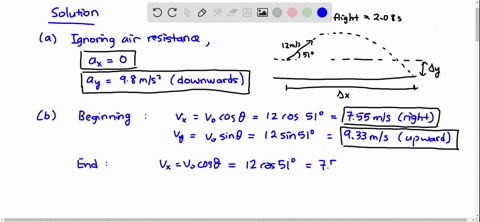 Solution
(a) Ignoring air resistance,
ax = 0
ay = 9.8 m/s² (downwards)
flight = 2.08s
12m/s
51°
Δy
Δx
(b) Beginning : Vx = V₀ cosθ = 12 cos 51° = 7.55 m/s (right)
Vy = V₀ sinθ = 12 sin 51° = 9.33 m/s (upward)
End : Vx = V₀ cosθ = 12 cos 51° = 7.5